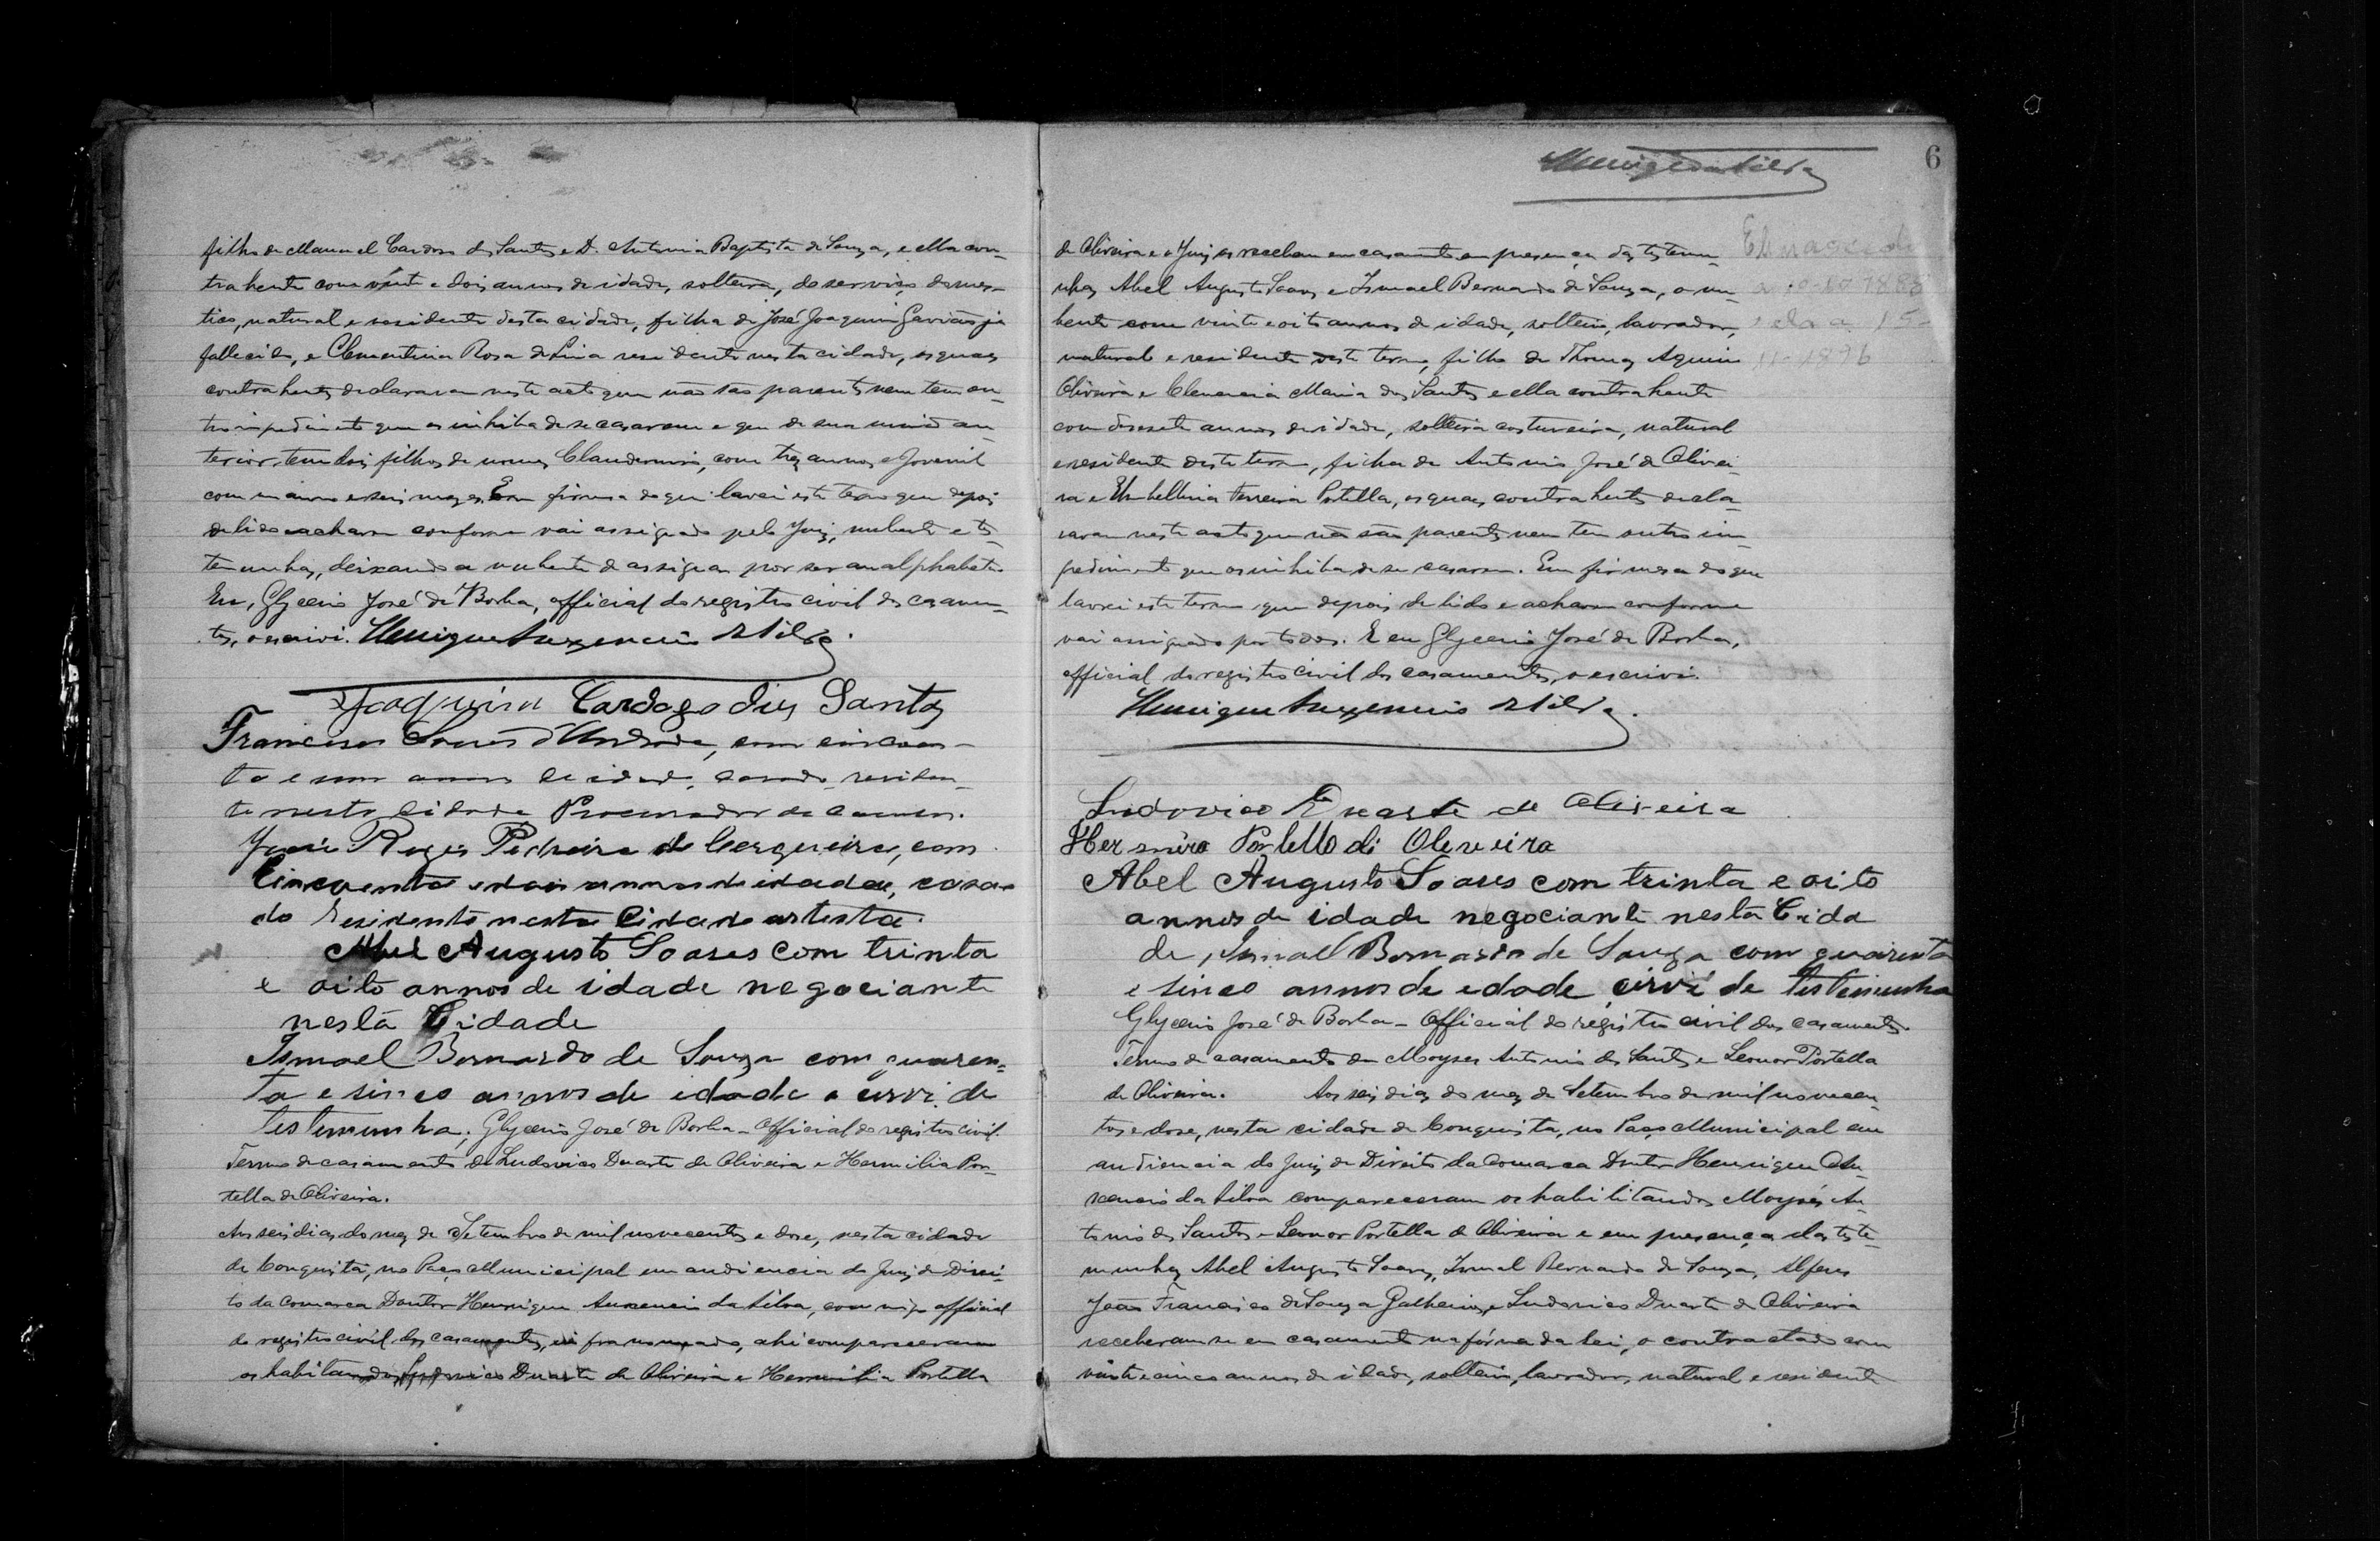 filho de Manuel Cardoso dos Santos e D. Antonia Baptista de Souza, e ella con-
trahente com vinte e dois annos de idade, solteira, do serviço domes-
tico, natural e residente desta cidade, filha de José Joaquim Gavião já
fallecido, e Clementina Rosa de Lima residente nesta cidade, os quaes
contrahentes declararam neste acto que não são parentes nem tem ou-
tro impedimento que os inhiba de se casarem e que de sua união an-
terior tem dois filhos de nomes Claudemiro, com tres annos e Jovenil
com um anno e seis mezes. Em firmeza do que lavrei este termo que depois
de lido e acharem conforme vai assignado pelo Juiz, nubente e tes-
temunhas, deixando a nubente de assignar por ser analphabeta.
Eu, Glycerio José de Borba, official do registro civil dos casamen-
tos, o escrivi. Henrique Auxencio da Silva.
Joaquim Cardozo dos Santos
Francisco d'Andrade, com cincoen-
ta e um annos de idade, casado, residen-
te nesta cidade Procurador de causas.
Pedreira de Cerqueira, com
Cincoenta e dois annos de idade, casa-
do Residente nesta Cidade artista.
Abel Augusto Soares com trinta
e oito annos de idade negociante
nesta Cidade
Ismael Bernardo de Souza com quaren-
ta e sinco annos de idade e cirvi de
testemunha. Glycerio José de Borba - Official do registro civil.
Termo de casamento de Ludovico Duarte de Oliveira e Hermilia Por-
tella de Oliveira.
Aos seis dias do mez de Setembro de mil novecentos e dose, nesta cidade
de Conquista, no Paço Municipal em audiencia do Juiz de Direi-
to da Comarca Doutor Henrique Auxencio da Silva, commigo official
do registro civil dos casamentos, infra nomeado, ahi compareceram
os habilitandos Ludovico Duarte de Oliveira e Hermilia Portella
6
Henrique da Silva
de Oliveira e o Juiz os recebeu em casamento em presença das testemu-
nhas Abel Augusto Soares e Ismael Bernardo de Souza, o nu-
bente com vinte e oito annos de idade, solteiro, lavrador,
natural e residente neste termo, filho de Thomaz Aquino
Oliveira e Clemencia Maria dos Santos e ella contrahente
com desesete annos de idade, solteira costureira, natural
e residente deste termo, filha de Antonio José de Olivei-
ra e Umbellina Ferreira Portella, os quaes contrahentes decla-
raram neste acto que não são parentes nem tem outro im-
pedimento que os inhiba de se casarem. Em firmeza do que
lavrei este termo que depois de lido e acharem conforme
vai assignado por todos. E eu Glycerio José de Borba,
official do registro civil dos casamentos, o escrivi.
Henrique Auxencio da Silva.
Ludovico Duarte de Oliveira
Portello di Oleveira
Abel Augusto Soares com trinta e oito
annos de idade negociante nesta Cida
de, Ismael Bernardo de Souza com quarenta
e sinco annos de edade cirvi de testemunha
Glycerio José de Borba - Official do registro civil dos casamentos.
Termo de casamento de Moyses Antonio dos Santos e Leonor Portella
de Oliveira. Aos seis dias do mez de Setembro de mil novecen-
tos e dose, nesta cidade de Conquista, no Paço Municipal em
audiencia do Juiz de Direito da Comarca Doutor Henrique Au-
xencio da Silva compareceram os habilitandos Moysés An-
tonio dos Santos e Leonor Portella de Oliveira e em presença das teste-
munhas Abel Augusto Soares, Ismael Bernardo de Souza, Alferes
João Francisco de Souza e Ludovico Duarte de Oliveira
receberam-se em casamento na fórma da lei, o contractado com
vinte e cinco annos de idade, solteiro, lavrador, natural e residente